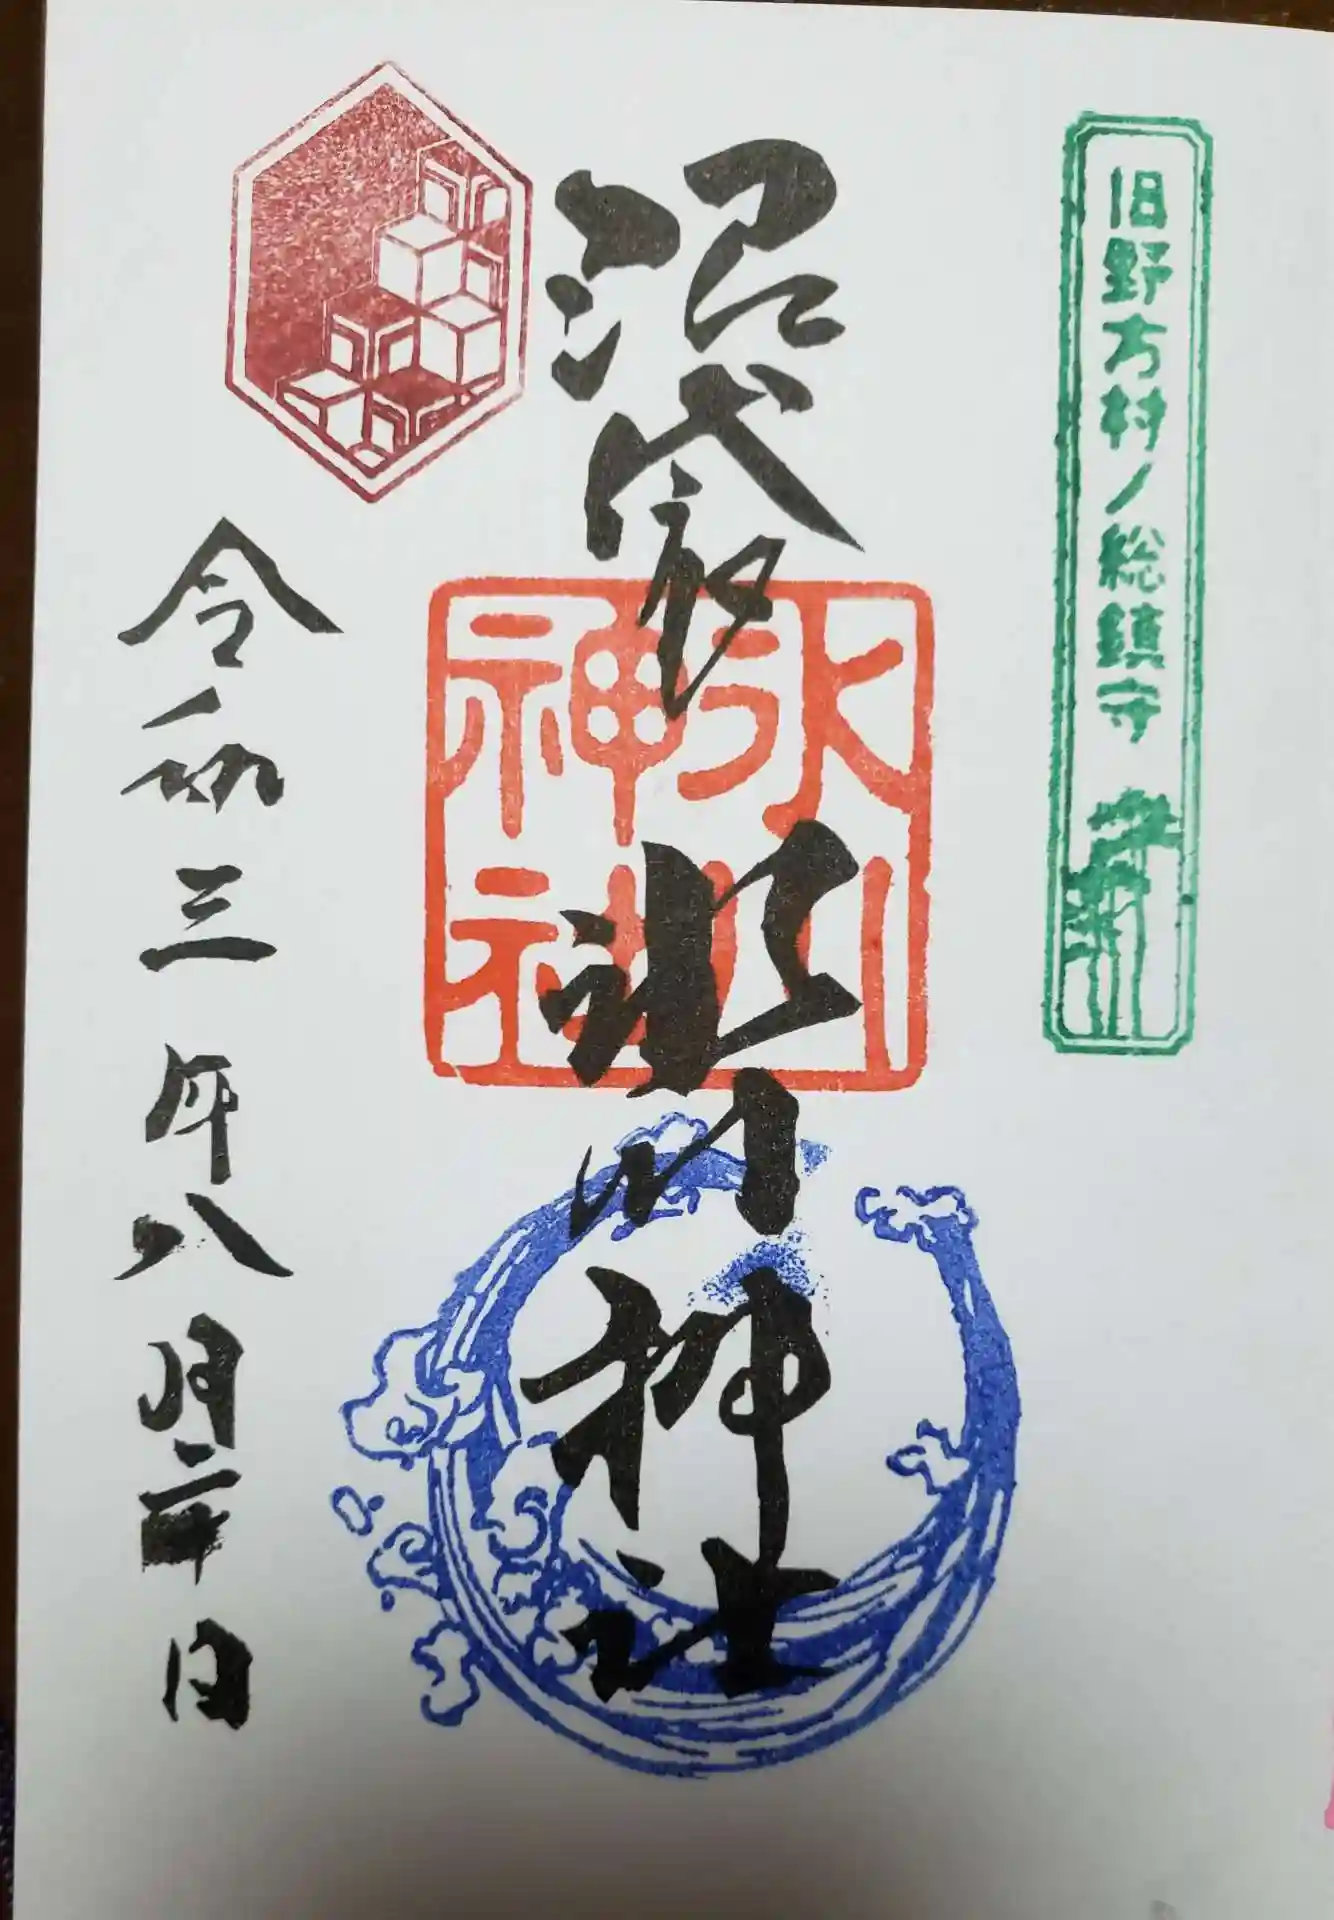 旧野方村ノ総鎮守
沼袋氷川神社
氷川
神社
令和三年八月二十日